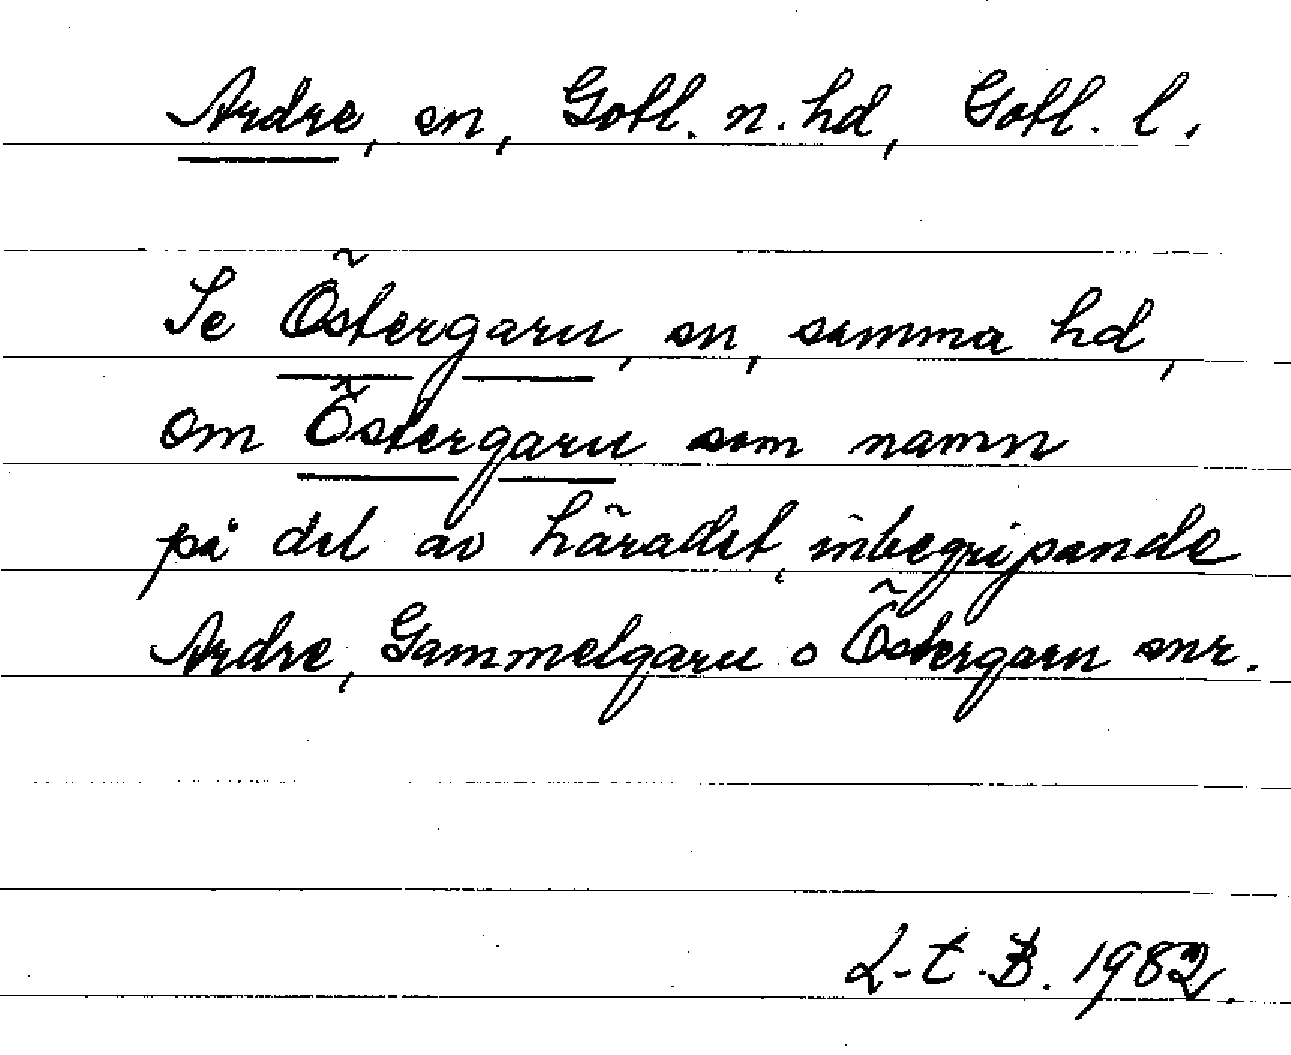 Ardre, sn, Gotl. n. hd, Gotl. l.
Se Östergarn, sn, samma hd,
om Östergarn som namn
på del av häradet, inbegripande
Ardre, Gammelgarn o Östergarn snr.
L-E. B. 1982.